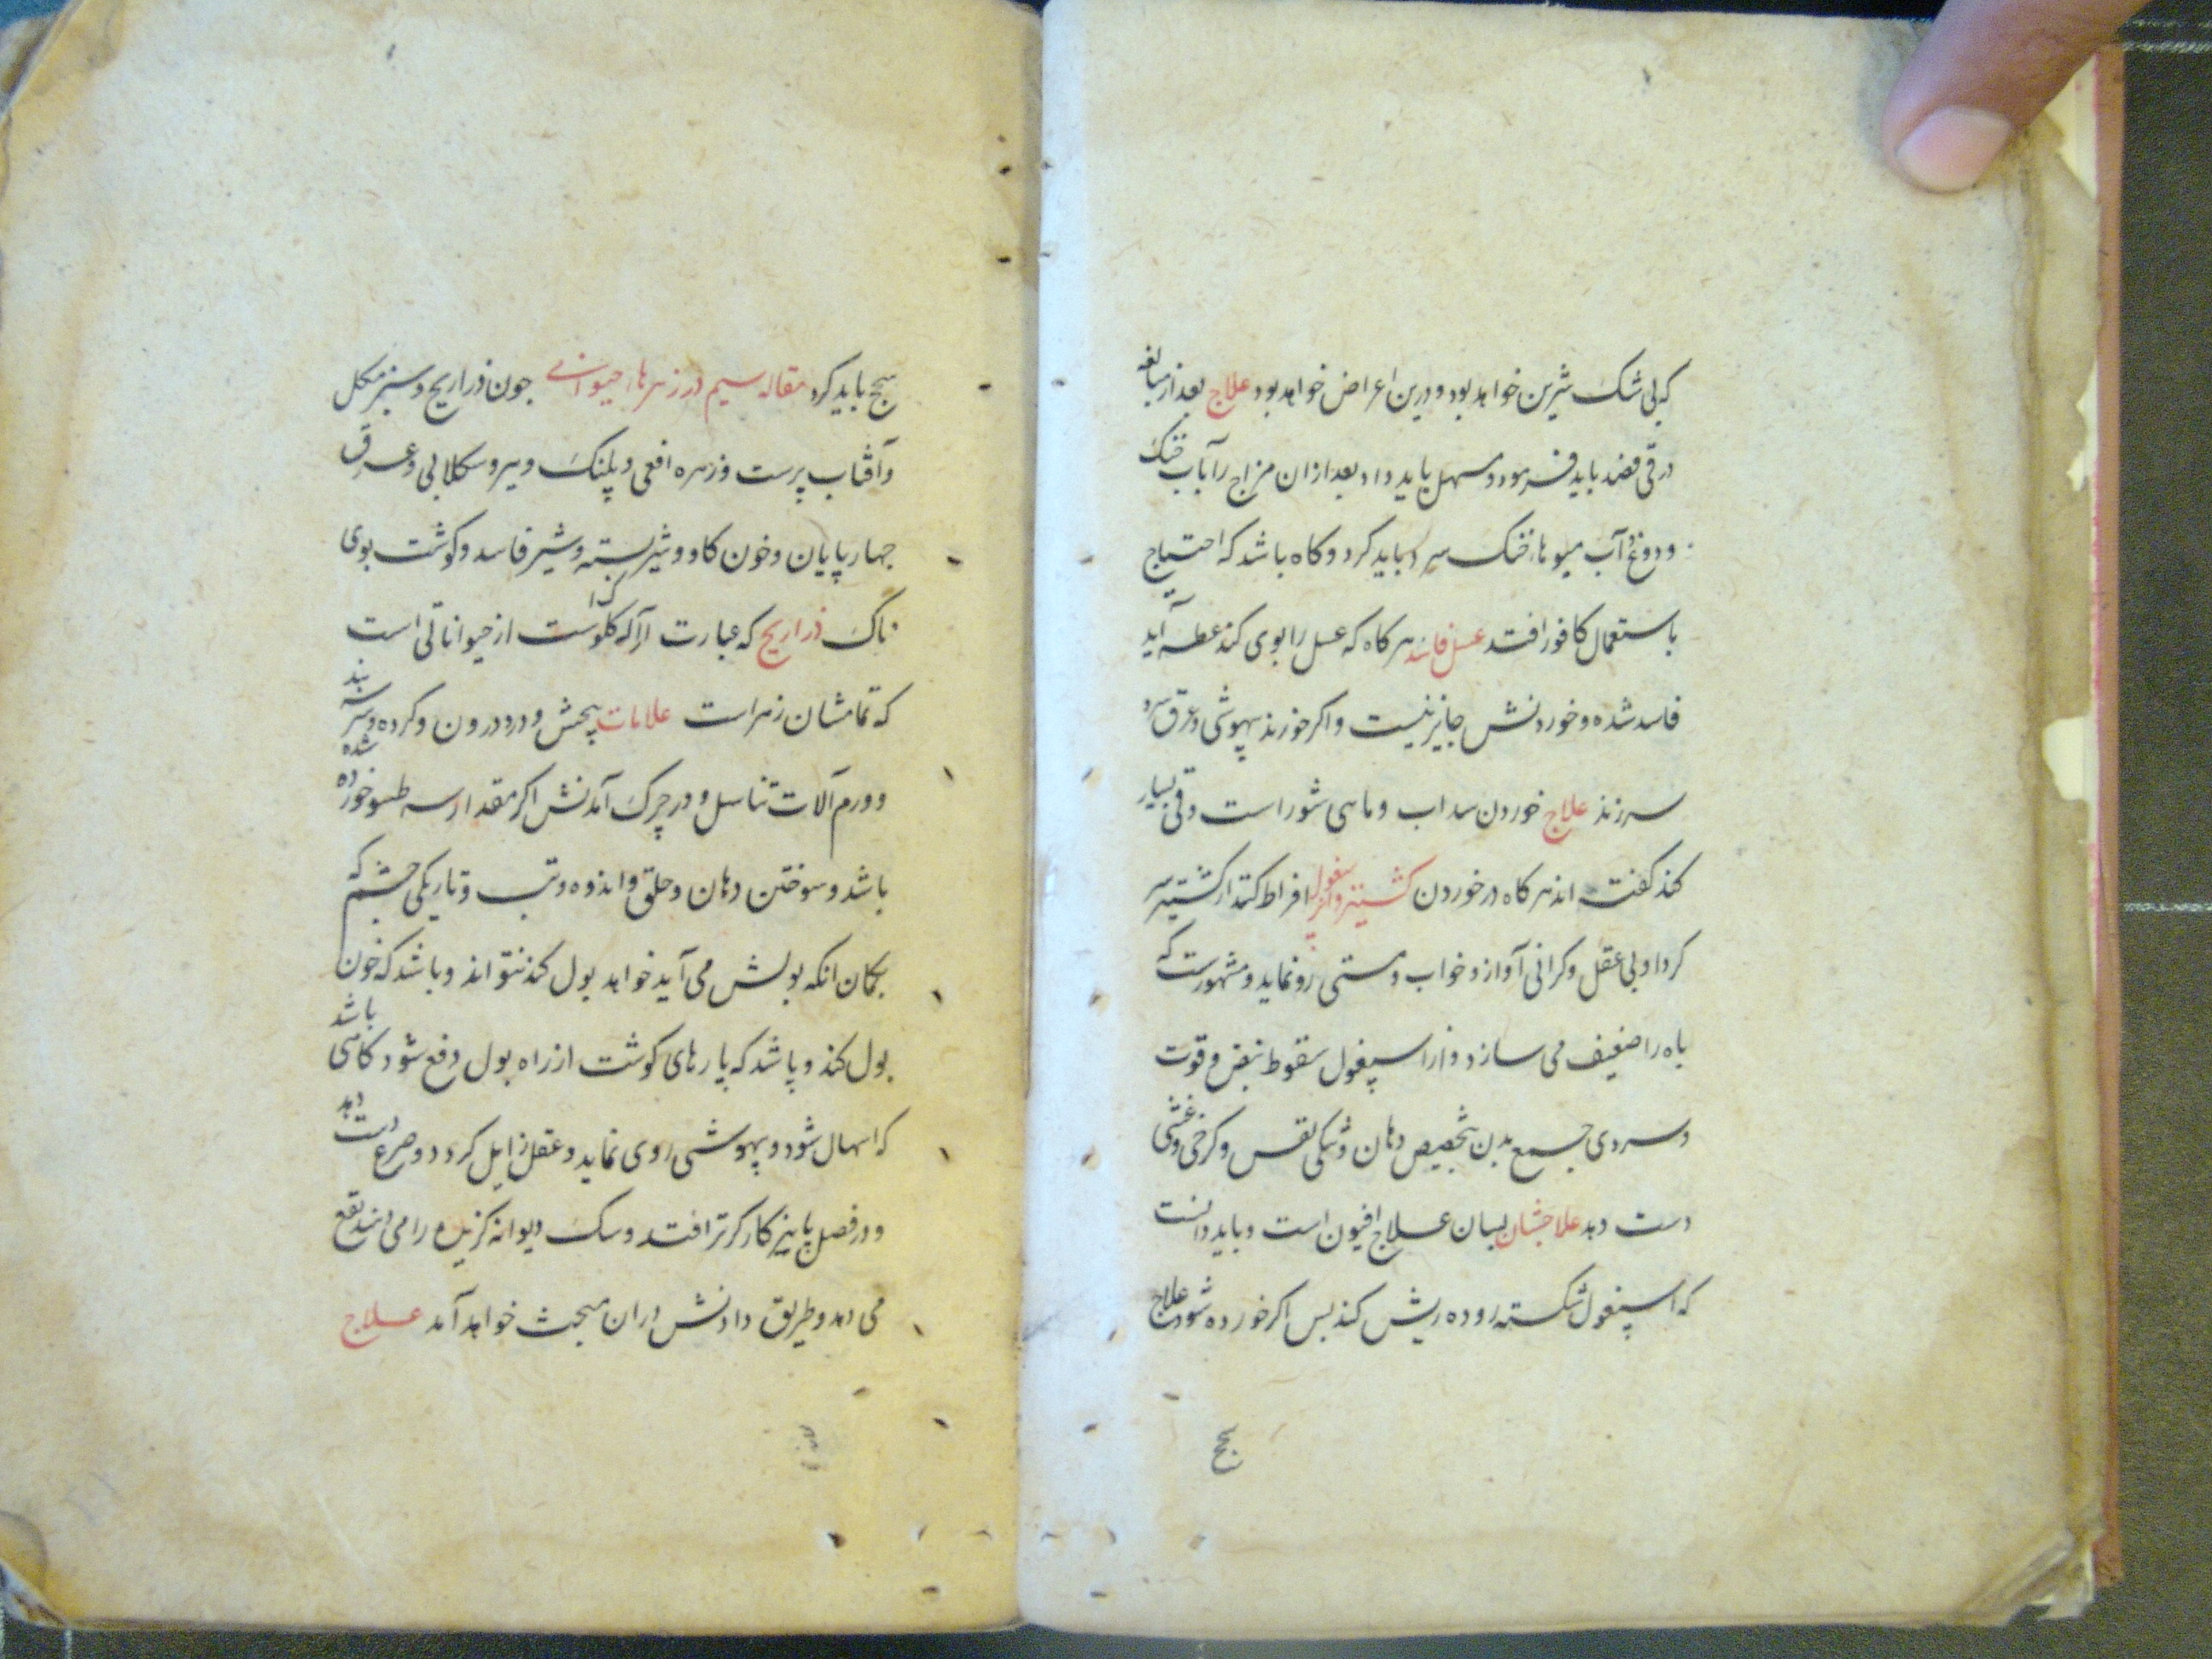 که بی شک شیرین خواهد بود و درین اعراض خواهد بود علاج بعد از مبالغه
در قی فصد باید فرمود و مسهل باید داد بعد ازان مزاج را بآب خنک
و دوغ و آب میوها خنک سرد باید کرد و کاه باشد که احتیاج
باستعمال کافور افتد عسل فاسد هر کاه که عسل را بوی کند عطسه آید
فاسد شده و خوردنش جایز نیست و اکر خورند بیهوشی و عرق سرد
سر زند علاج خوردن سداب و ماهی شور است و قی بسیار
کند کفته اند هر کاه در خوردن کشنیز و اسفول افراط کنند از کشنیز سر
کردا و بی عقل و کرانی آواز و خواب و مستی رو نماید و مشهورست که
باه را ضعیف می سازد و از اسپغول سقوط نبض و قوت
و سردی جمیع بدن بتخصیص دهان و تنکی نفس و کرخی و غشی
دست دهد علاجشان بسان علاج افیون است و باید دانست
که اسپغول شکسته روده ریش کند بس اکر خورده شود علاج
سحج
سحج باید کرد مقاله سیم در زهرهاء حیوانی جون ذراریح و سبز مکل
و آفتاب پرست و زهره افعی و پلنک و سکلابی و عرق
جهار پایان و خون کاو و شیر بسته و شیر فاسد و کوشت بوی
ناک ذراریح که عبارت از آله کلو است از حیواناتی است
که تمامشان زهر است علامات پیچش و درد درون و کرده و
شده
و ورم آلات تناسل و در چرک آمدنش اکر مقدار سه طسو خورده
باشد و سوختن دهان و حلق و اندوه و تب و تاریکی چشم که
بکمان انکه بولش می آید خواهد بول کند نتواند و باشد که خون
بول کند و باشد که پارهای کوشت از راه بول دفع شود کاهی باشد
که اسهال شود و بیهوشی روی نماید و عقل زایل کردد و صرع دست دهد
و در فصل پاییز کارکرتر افتد و سک دیوانه کزیده را می دهند نفع
می دهد و طریق دادنش دران مبحث خواهد آمد علاج